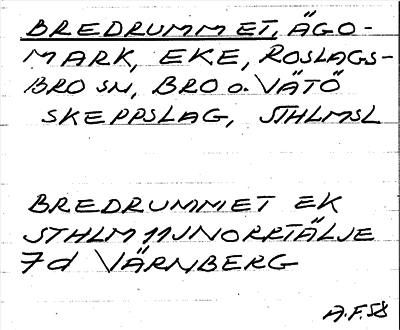 BREDRUMMET, ÄGO-
MARK, EKE, ROSLAGS-
BRO SN, BRO O. VÄTÖ
SKEPPSLAG, STHLMSL
BREDRUMMET EK
STHLM 11J NORRTÄLJE
7d VÄRNBERG
A.F.58